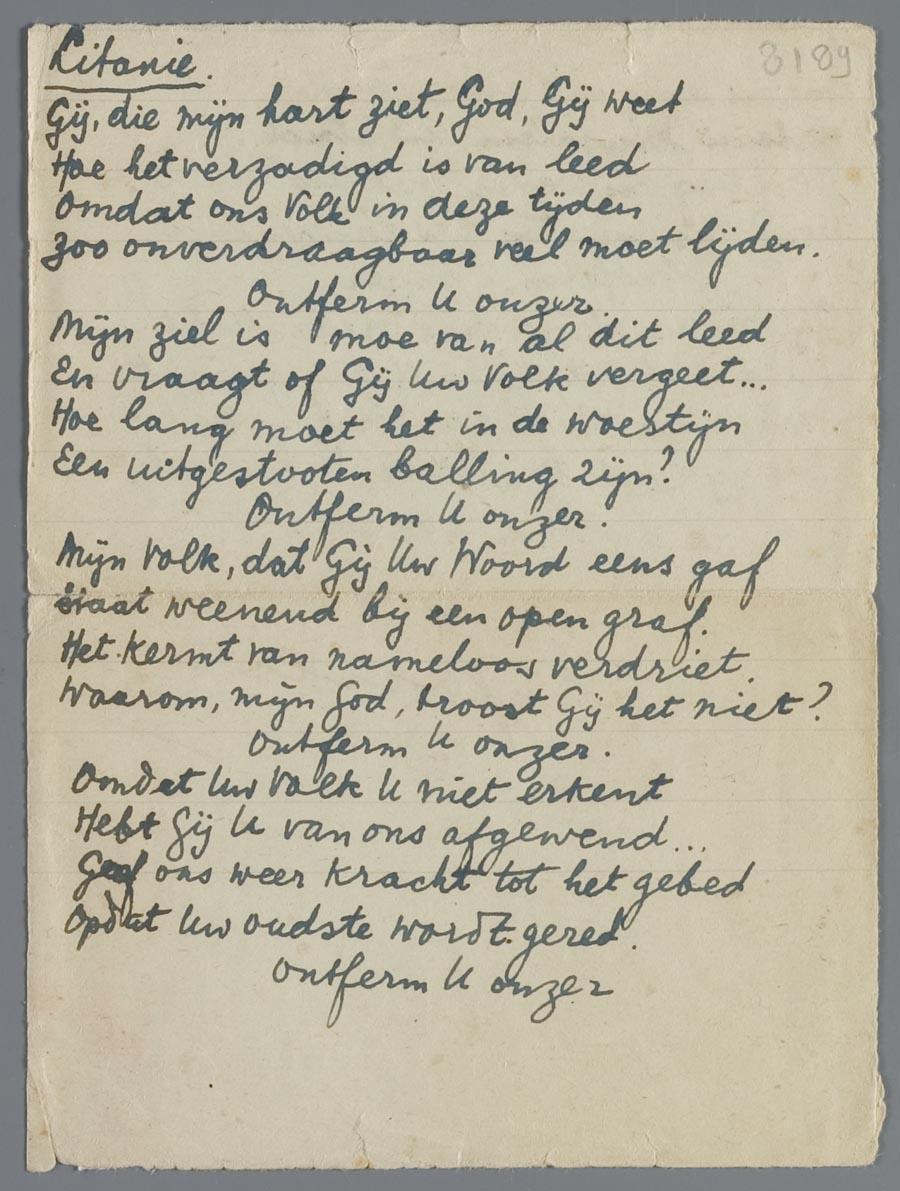 Litanie.
8189
Gij, die mijn hart ziet, God, Gij weet
Hoe het verzadigd is van leed
Omdat ons Volk in deze tijden
Zoo onverdraagbaar veel moet lijden.
Ontferm U onzer.
Mijn ziel is moe van al dit leed
En vraagt of Gij Uw Volk vergeet...
Hoe lang moet het in de woestijn
Een uitgestooten balling zijn?
Ontferm U onzer.
Mijn Volk, dat Gij Uw Woord eens gaf
Staat weenend bij een open graf.
Het kermt van nameloos verdriet.
Waarom, mijn God, troost Gij het niet?
Ontferm U onzer.
Omdat Uw Volk U niet erkent
Hebt Gij U van ons afgewend...
Geef ons weer kracht tot het gebed
Opdat Uw oudste wordt gered.
Ontferm U onzer